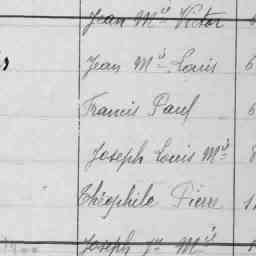 Jean Mie Victor
Jean Mie Louis 6
Francis Paul 6
Joseph Louis Mie 8
Théophile Pierre 1
Joseph Mie